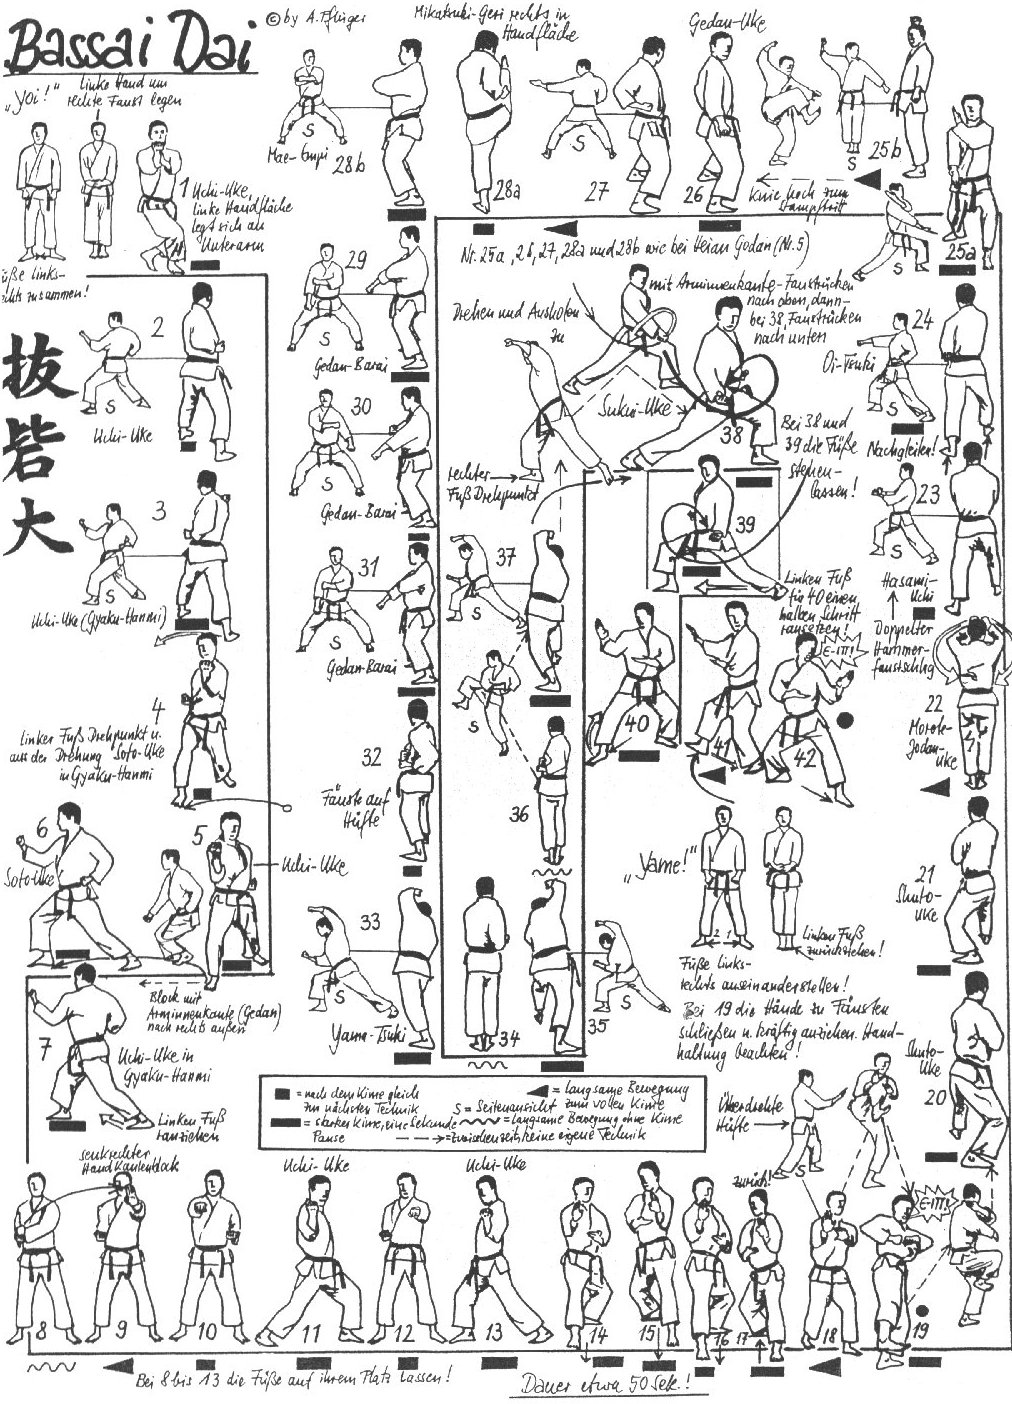 Bassai Dai
© by A. Pflüger
„Yoi!"
linke Hand um
rechte Faust legen
1 Uchi-Uke,
linke Handfläche
legt sich an
Unterarm
Füße links-
rechts zusammen!
抜
砦
大
2
S
Uchi-Uke
3
S
Uchi-Uke (Gyaku-Hanmi)
4
Linker Fuß Drehpunkt u.
aus der Drehung Soto-Uke
in Gyaku-Hanmi
5
Uchi-Uke
6
Soto-Uke
Block mit
Arminnenkante (Gedan)
nach rechts außen
7
Uchi-Uke in
Gyaku-Hanmi
Linken Fuß
ranziehen
senkrechter
Handkantenblock
8
9
10
Uchi-Uke
11
12
Uchi-Uke
13
14
15
16
zurück!
17
18
S
Überdrehte
Hüfte
E-iTT!
19
Bei 8 bis 13 die Füße auf ihrem Platz lassen!
Dauer etwa 50 Sek.!
Shuto-
Uke
20
21
Shuto-
Uke
22
Morote-
Jodan-
Uke
23
S
Hasami-
Uchi
Doppelter
Hammer-
faustschlag
24
S
Oi-Tsuki
Nachgleiten!
25a
S
25b
S
Knie hoch zum
Stampftritt
Gedan-Uke
26
27
S
Mikatsuki-Geri rechts in
Handfläche
28a
28b
S
Mae-Empi
Nr. 25a, 26, 27, 28a und 28b wie bei Heian Godan (Nr. 5)
29
S
Gedan-Barai
30
S
Gedan-Barai
31
S
Gedan-Barai
32
Fäuste auf
Hüfte
33
S
Yama-Tsuki
34
35
S
36
37
S
S
rechter
Fuß Drehpunkt
Drehen und Ausholen
zu
mit Arminnenkante-Faustrücken
nach oben, dann-
bei 38, Faustrücken
nach unten
Sukui-Uke
38
Bei 38 und
39 die Füße
stehen-
lassen!
39
Linken Fuß
für 40 einen
halben Schritt
ransetzen!
40
41
E-iTT!
42
„Yame!"
2 1
Linken Fuß
zurückziehen!
Füße links-
rechts auseinanderstellen!
Bei 19 die Hände zu Fäusten
schließen u. kräftig anziehen. Hand-
haltung beachten!
= nach dem Kime gleich
zur nächsten Technik
= starkes Kime, eine Sekunde
Pause
= langsame Bewegung
zum vollen Kime
S = Seitenansicht
= langsame Bewegung ohne Kime
= Zwischenzeit, keine eigene Technik